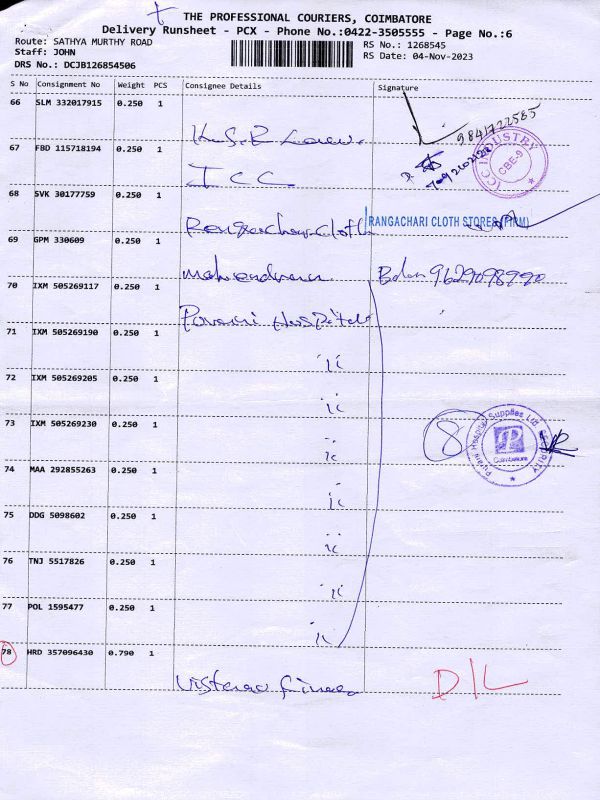 THE PROFESSIONAL COURIERS, COIMBATORE
Delivery Runsheet - PCX - Phone No.:0422-3505555 - Page No.:6
Route: SATHYA MURTHY ROAD
RS No.: 1268545
Staff: JOHN
RS Date: 04-Nov-2023
DRS No.: DCJB126854506
S No Consignment No Weight PCS Consignee Details Signature
66 SLM 332017915 0.250 1
9841722585
67 FBD 115718194 0.250 1
ICC
ICC INDUSTRY
CBE-9
68 SVK 30177759 0.250 1
Rangachari Cloth
RANGACHARI CLOTH STORES (FIRM)
69 GPM 330609 0.250 1
Mahendran
9629098990
70 IXM 505269117 0.250 1
Hospital
71 IXM 505269190 0.250 1
"
72 IXM 505269205 0.250 1
"
73 IXM 505269230 0.250 1
"
8
Hospital Supplies Ltd SECURITY
Coimbatore
74 MAA 292855263 0.250 1
"
75 DDG 5098602 0.250 1
"
76 TNJ 5517826 0.250 1
"
77 POL 1595477 0.250 1
"
78 HRD 357096430 0.790 1
D/L